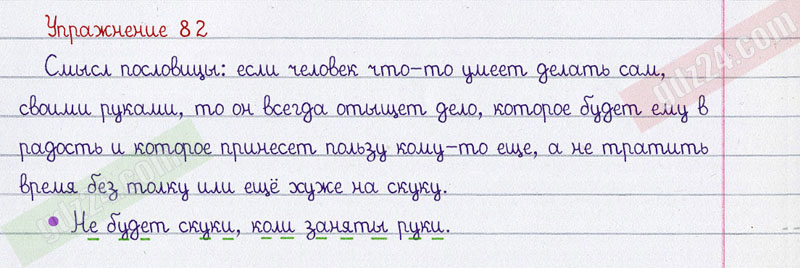 Упражнение 82
Смысл пословицы: если человек что-то умеет делать сам,
своими руками, то он всегда отыщет дело, которое будет ему в
радость и которое принесет пользу кому-то еще, а не тратить
время без толку или ещё хуже на скуку.
• Не будет скуки, коли заняты руки.
gdz24.com
gdz24.com